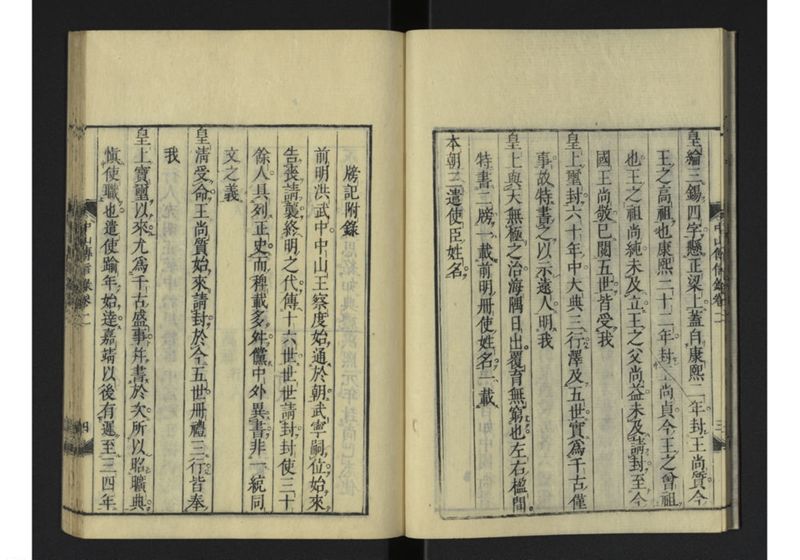 皇綸三錫四字懸正梁上蓋自康熙二年封王尚質今
王之高祖也康熙二十二年封王尚貞今王之曾祖
也王之祖尚純未及立王之父尚益未及請封至今
國王尚敬已閱五世皆受我
皇上璽封六十年中大典三行澤及五世實爲千古僅
事故特書之以示遠人明我
皇上與天無極之治海隅日出覆育無窮也左右楹間
特書二牓一載前明冊使姓名一載
本朝三遣使臣姓名
中山傳信錄卷二
三
牓記附錄
前明洪武中中山王察度始通於朝武寧嗣位始來
告喪請襲終明之代傳十六世世世請封封使三十
餘人具列正史而稗載多舛儻中外異書非一統同
文之義
皇淸受命王尚質始來請封於今五世冊禮三行皆奉
我
皇上寶璽以來尤爲千古盛事幷書於次所以昭職典
愼使職也遣使踰年始達嘉靖以後有遲至三四年
中山傳信錄卷二
四